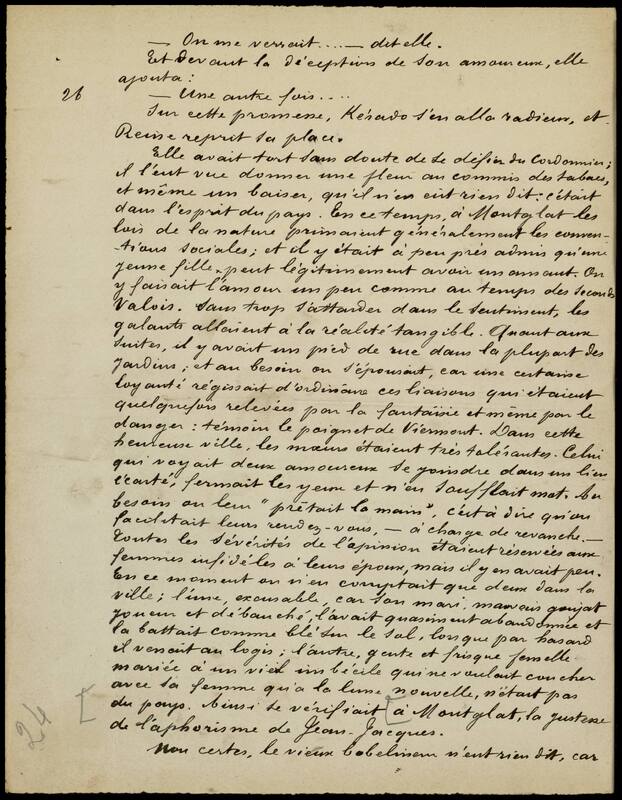 — On me verrait.... — dit elle.
Et devant la déception de son amoureux, elle
ajouta:
26
— Une autre fois....
Sur cette promesse, Késado s'en alla radieux, et
Reine reprit sa place.
Elle avait tort sans doute de se défier du cordonnier;
il l'eut vue donner une fleur au commis des tabacs,
et même un baiser, qu'il n'en eut rien dit: c'était
dans l'esprit du pays. En ce temps, à Montglat les
lois de la nature primaient généralement les conven-
-tions sociales; et il y était à peu près admis qu'une
jeune fille peut légitimement avoir un amant. On
y faisait l'amour un peu comme au temps des seconds
Valois. Sans trop s'attarder dans le sentiment, les
galants allaient à la réalité tangible. Quant aux
suites, il y avait un pied de rue dans la plupart des
jardins; et au besoin on s'épousait, car une certaine
loyauté régissait d'ordinaire ces liaisons qui étaient
quelquefois relevées par la fantaisie et même par le
danger: témoin le poignet de Viermont. Dans cette
heureuse ville, les mœurs étaient très tolérantes. Celui
qui voyait deux amoureux se joindre dans un lieu
écarté, fermait les yeux et n'en soufflait mot. Au
besoin on leur "prêtait la main", c'est à dire qu'on
facilitait leurs rendez-vous, — à charge de revanche. —
Toutes les sévérités de l'opinion étaient réservées aux
femmes infidèles à leurs époux, mais il y en avait peu.
En ce moment on n'en comptait que deux dans la
ville; l'une, excusable, car son mari, mauvais goujat
joueur et débauché, l'avait quasiment abandonnée et
la battait comme blé sur le sol, lorsque par hasard
il venait au logis; l'autre, gente et frisque femelle
mariée à un vieil imbécile qui ne voulait coucher
avec sa femme qu'à la lune nouvelle, n'était pas
du pays. Ainsi se vérifiait [à Montglat, la justesse
de l'aphorisme de Jean-Jacques.
24
Non certes, le vieux bobelineur n'eut rien dit, car